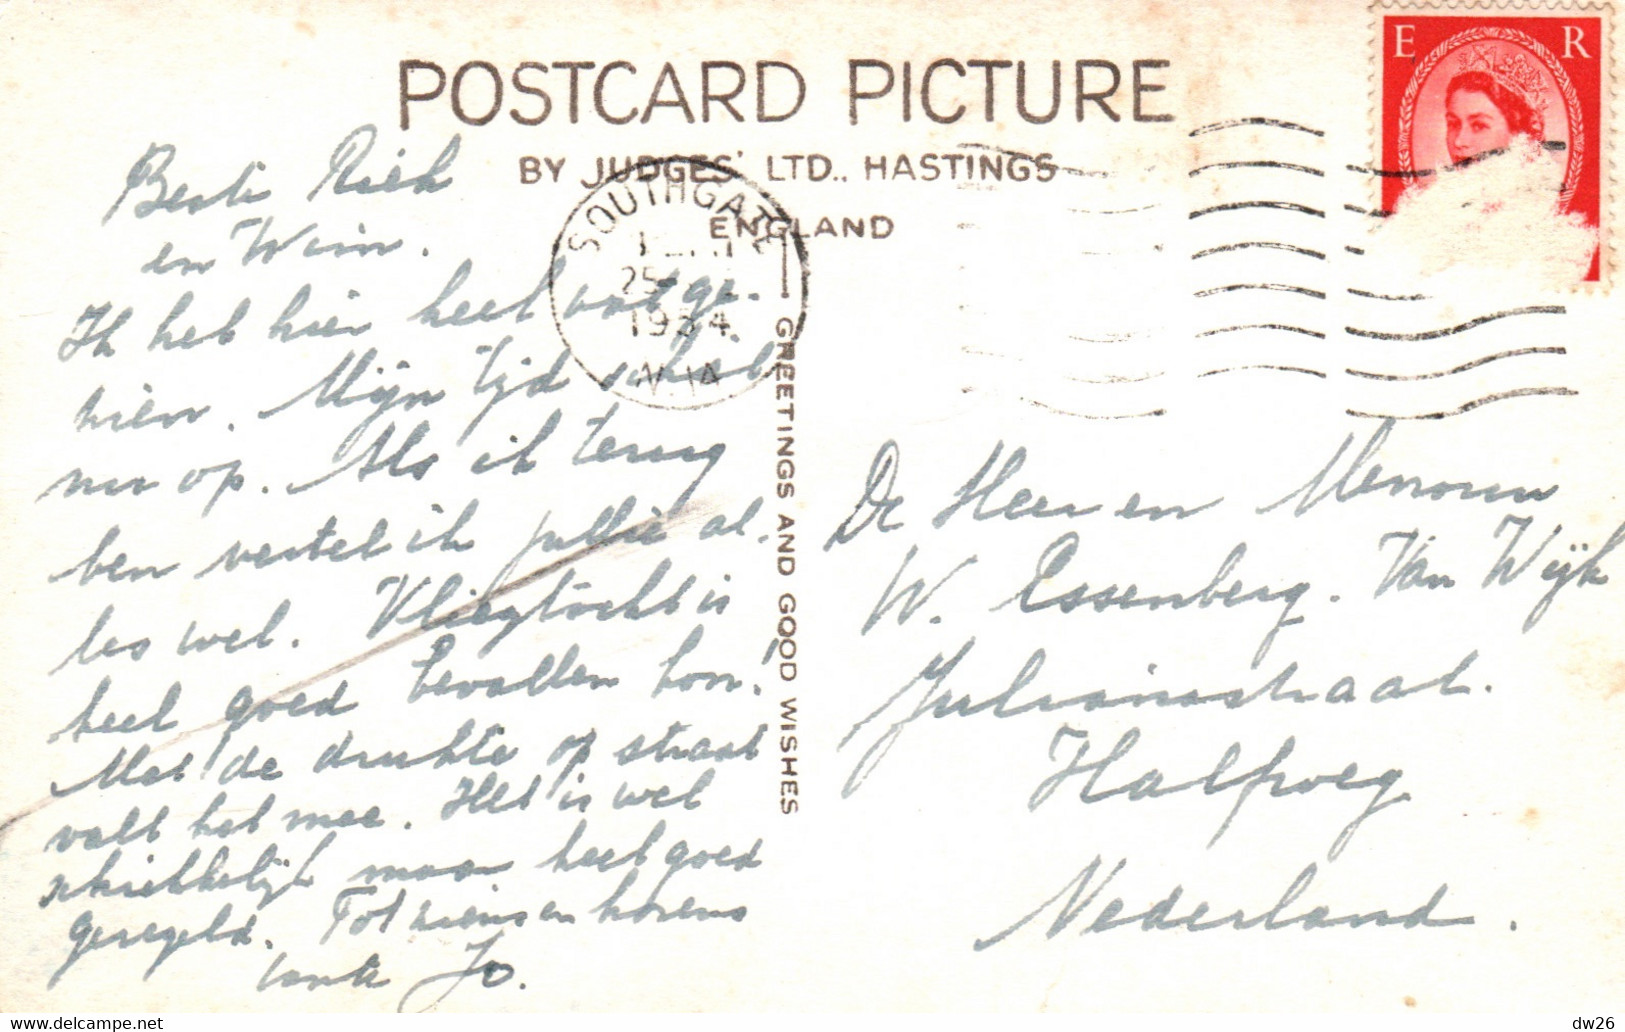 POSTCARD PICTURE
BY JUDGES' LTD., HASTINGS
ENGLAND
E R
SOUTHGATE
25
1954
N.14
GREETINGS AND GOOD WISHES
Beste Riek
en Wim.
Ik heb hier heel wat ge-
zien. Mijn tijd schiet
nu op. Als ik terug
ben vertel ik jullie al-
les wel. Vliegtocht is
heel goed bevallen hoor!
Met de drukte op straat
valt het mee. Het is wel
schrikkelijk maar heel goed
geregeld. Tot ziens en horens
tante Jo.
De Heer en Mevrouw
W. Essenberg. Van Wijk
Julianastraat.
Halfweg
Nederland.
dw26
www.delcampe.net